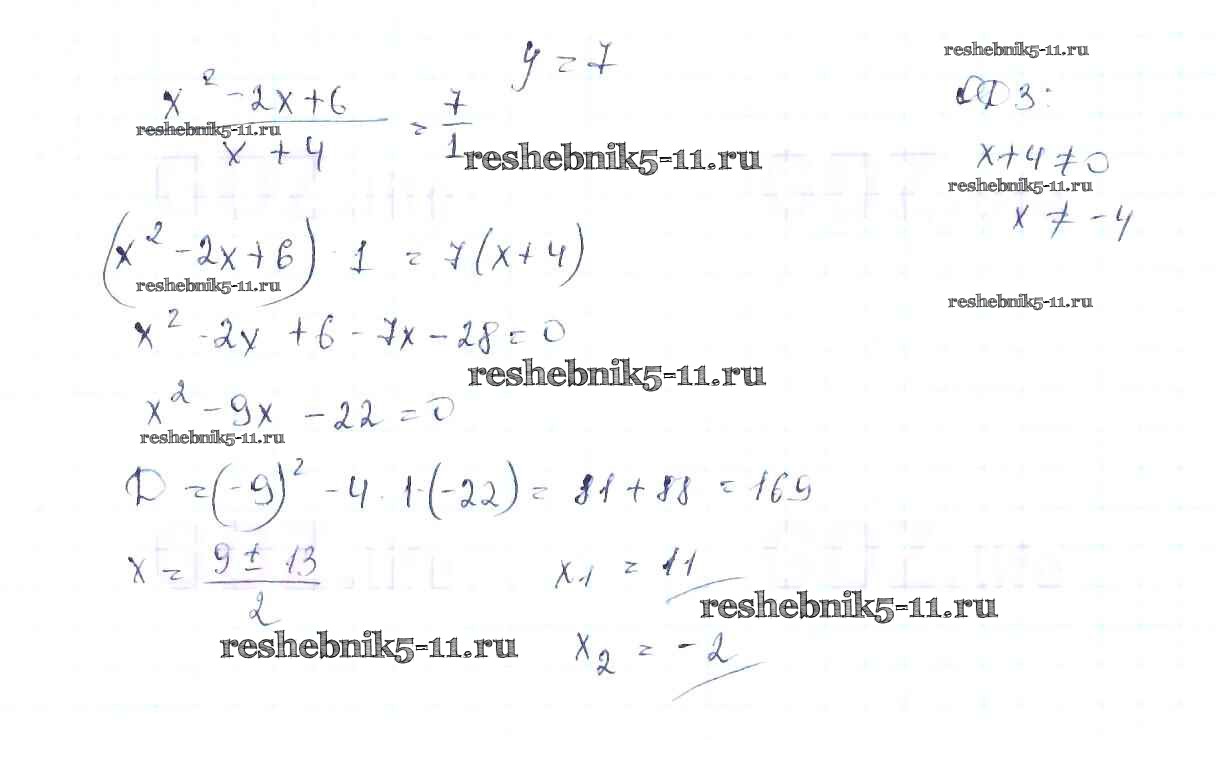 y = 7
reshebnik5-11.ru
x² - 2x + 6
reshebnik5-11.ru
x + 4
= 7/1
reshebnik5-11.ru
ОДЗ:
x + 4 ≠ 0
reshebnik5-11.ru
x ≠ -4
(x² - 2x + 6) · 1 = 7(x + 4)
reshebnik5-11.ru
reshebnik5-11.ru
x² - 2x + 6 - 7x - 28 = 0
reshebnik5-11.ru
x² - 9x - 22 = 0
reshebnik5-11.ru
D = (-9)² - 4 · 1 · (-22) = 81 + 88 = 169
x = (9 ± 13)/2
x₁ = 11
reshebnik5-11.ru
reshebnik5-11.ru
x₂ = -2